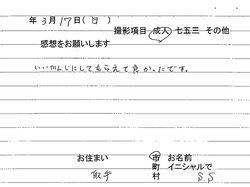 年 3月17日(日)
撮影項目 成人 七五三 その他
感想をお願いします
いいかんじにしてもらえて良かったです。
お住まい 市 お名前
取手 町 イニシャルで
村 S.S